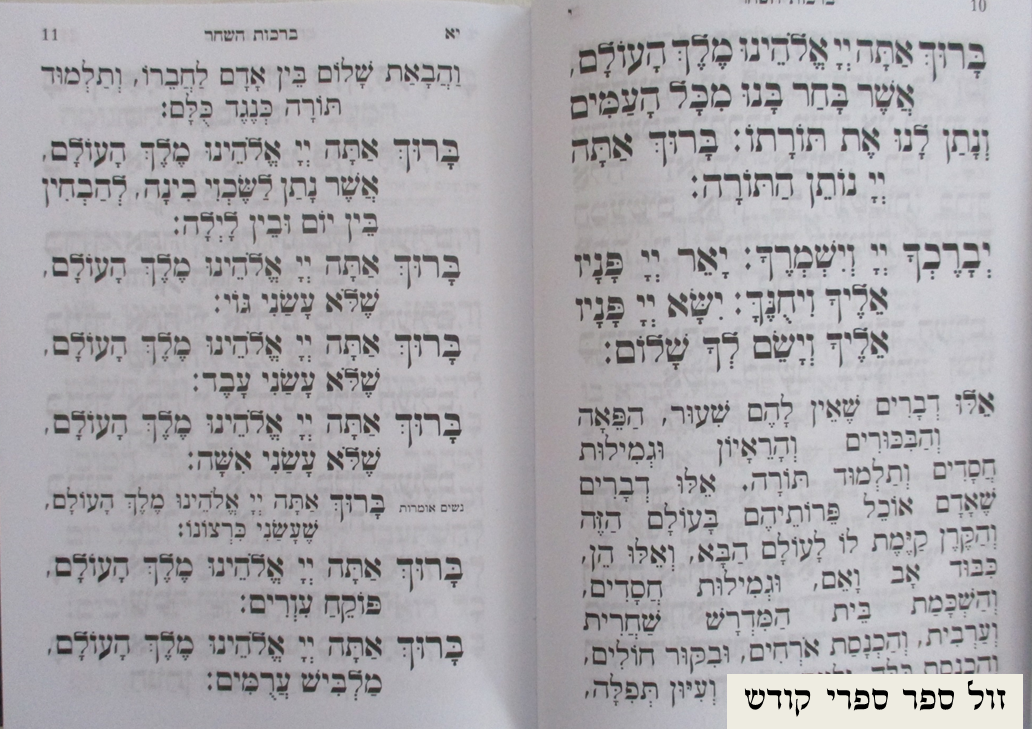 10
בָּרוּךְ אַתָּה יְיָ אֱלֹהֵינוּ מֶלֶךְ הָעוֹלָם,
אֲשֶׁר בָּחַר בָּנוּ מִכָּל הָעַמִּים
וְנָתַן לָנוּ אֶת תּוֹרָתוֹ: בָּרוּךְ אַתָּה
יְיָ נוֹתֵן הַתּוֹרָה:
יְבָרֶכְךָ יְיָ וְיִשְׁמְרֶךָ: יָאֵר יְיָ פָּנָיו
אֵלֶיךָ וִיחֻנֶּךָּ: יִשָּׂא יְיָ פָּנָיו
אֵלֶיךָ וְיָשֵׂם לְךָ שָׁלוֹם:
אֵלּוּ דְבָרִים שֶׁאֵין לָהֶם שִׁעוּר, הַפֵּאָה
וְהַבִּכּוּרִים וְהָרֵאָיוֹן וּגְמִילוּת
חֲסָדִים וְתַלְמוּד תּוֹרָה. אֵלּוּ דְבָרִים
שֶׁאָדָם אוֹכֵל פֵּרוֹתֵיהֶם בָּעוֹלָם הַזֶּה
וְהַקֶּרֶן קַיֶּמֶת לוֹ לָעוֹלָם הַבָּא, וְאֵלּוּ הֵן,
כִּבּוּד אָב וָאֵם, וּגְמִילוּת חֲסָדִים,
וְהַשְׁכָּמַת בֵּית הַמִּדְרָשׁ שַׁחֲרִית
וְעַרְבִית, וְהַכְנָסַת אֹרְחִים, וּבִקּוּר חוֹלִים,
וְהַכְנָסַת כַּלָּה,
וְעִיּוּן תְּפִלָּה,
זול ספר ספרי קודש
יא ברכות השחר 11
וַהֲבָאַת שָׁלוֹם בֵּין אָדָם לַחֲבֵרוֹ, וְתַלְמוּד
תּוֹרָה כְּנֶגֶד כֻּלָּם:
בָּרוּךְ אַתָּה יְיָ אֱלֹהֵינוּ מֶלֶךְ הָעוֹלָם,
אֲשֶׁר נָתַן לַשֶּׂכְוִי בִינָה, לְהַבְחִין
בֵּין יוֹם וּבֵין לָיְלָה:
בָּרוּךְ אַתָּה יְיָ אֱלֹהֵינוּ מֶלֶךְ הָעוֹלָם,
שֶׁלֹּא עָשַׂנִי גּוֹי:
בָּרוּךְ אַתָּה יְיָ אֱלֹהֵינוּ מֶלֶךְ הָעוֹלָם,
שֶׁלֹּא עָשַׂנִי עָבֶד:
בָּרוּךְ אַתָּה יְיָ אֱלֹהֵינוּ מֶלֶךְ הָעוֹלָם,
שֶׁלֹּא עָשַׂנִי אִשָּׁה:
נשים אומרות בָּרוּךְ אַתָּה יְיָ אֱלֹהֵינוּ מֶלֶךְ הָעוֹלָם,
שֶׁעָשַׂנִי כִּרְצוֹנוֹ:
בָּרוּךְ אַתָּה יְיָ אֱלֹהֵינוּ מֶלֶךְ הָעוֹלָם,
פּוֹקֵחַ עִוְרִים:
בָּרוּךְ אַתָּה יְיָ אֱלֹהֵינוּ מֶלֶךְ הָעוֹלָם,
מַלְבִּישׁ עֲרֻמִּים: